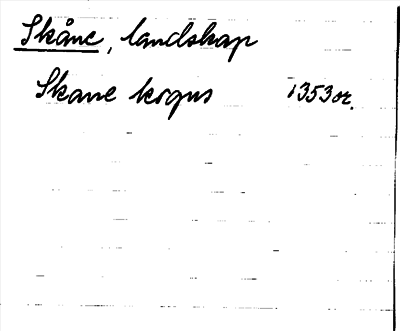 Skåne, landskap
Skane kogus 1353 or.